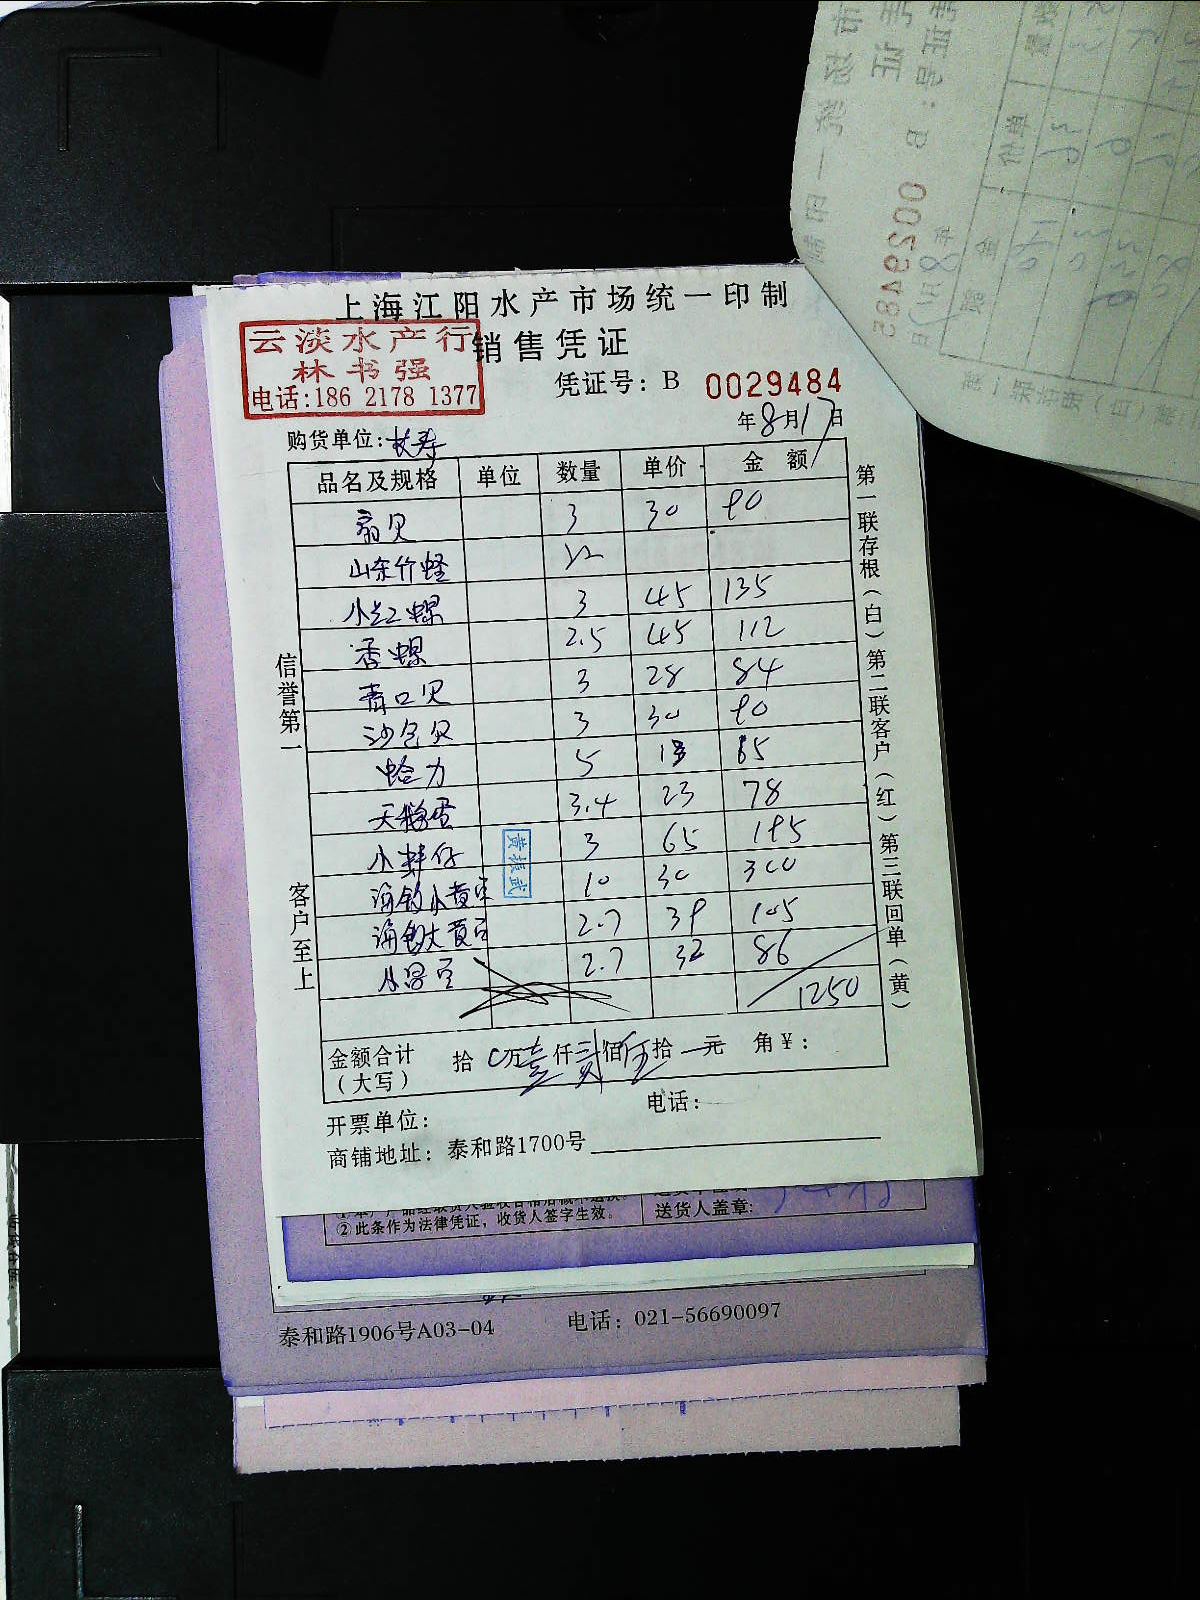 上海江阳水产市场统一印制
云淡水产行
林书强
电话:186 2178 1377
销售凭证
凭证号: B 0029484
年8月17日
购货单位:长寿
品名及规格 单位 数量 单价 金额
扇贝 3 30 90
山东竹蛏
小红螺 3 45 135
香螺 2.5 45 112
青口贝 3 28 84
沙包贝 3 30 90
蛤力 5
天鹅蛋 3.4 23 78
小鲜仔 3 65 195
海钓小黄 10 30 300
海钓大黄 2.7 39 105
2.7 32 86
1250
金额合计
(大写)
拾 0万壹仟贰佰伍拾 元 角¥:
开票单位:
电话:
商铺地址: 泰和路1700号
信誉第一
客户至上
第一联存根(白) 第二联客户(红) 第三联回单(黄)
黄振武
②此条作为法律凭证, 收货人签字生效。
送货人盖章:
泰和路1906号A03-04
电话: 021-56690097
0029485